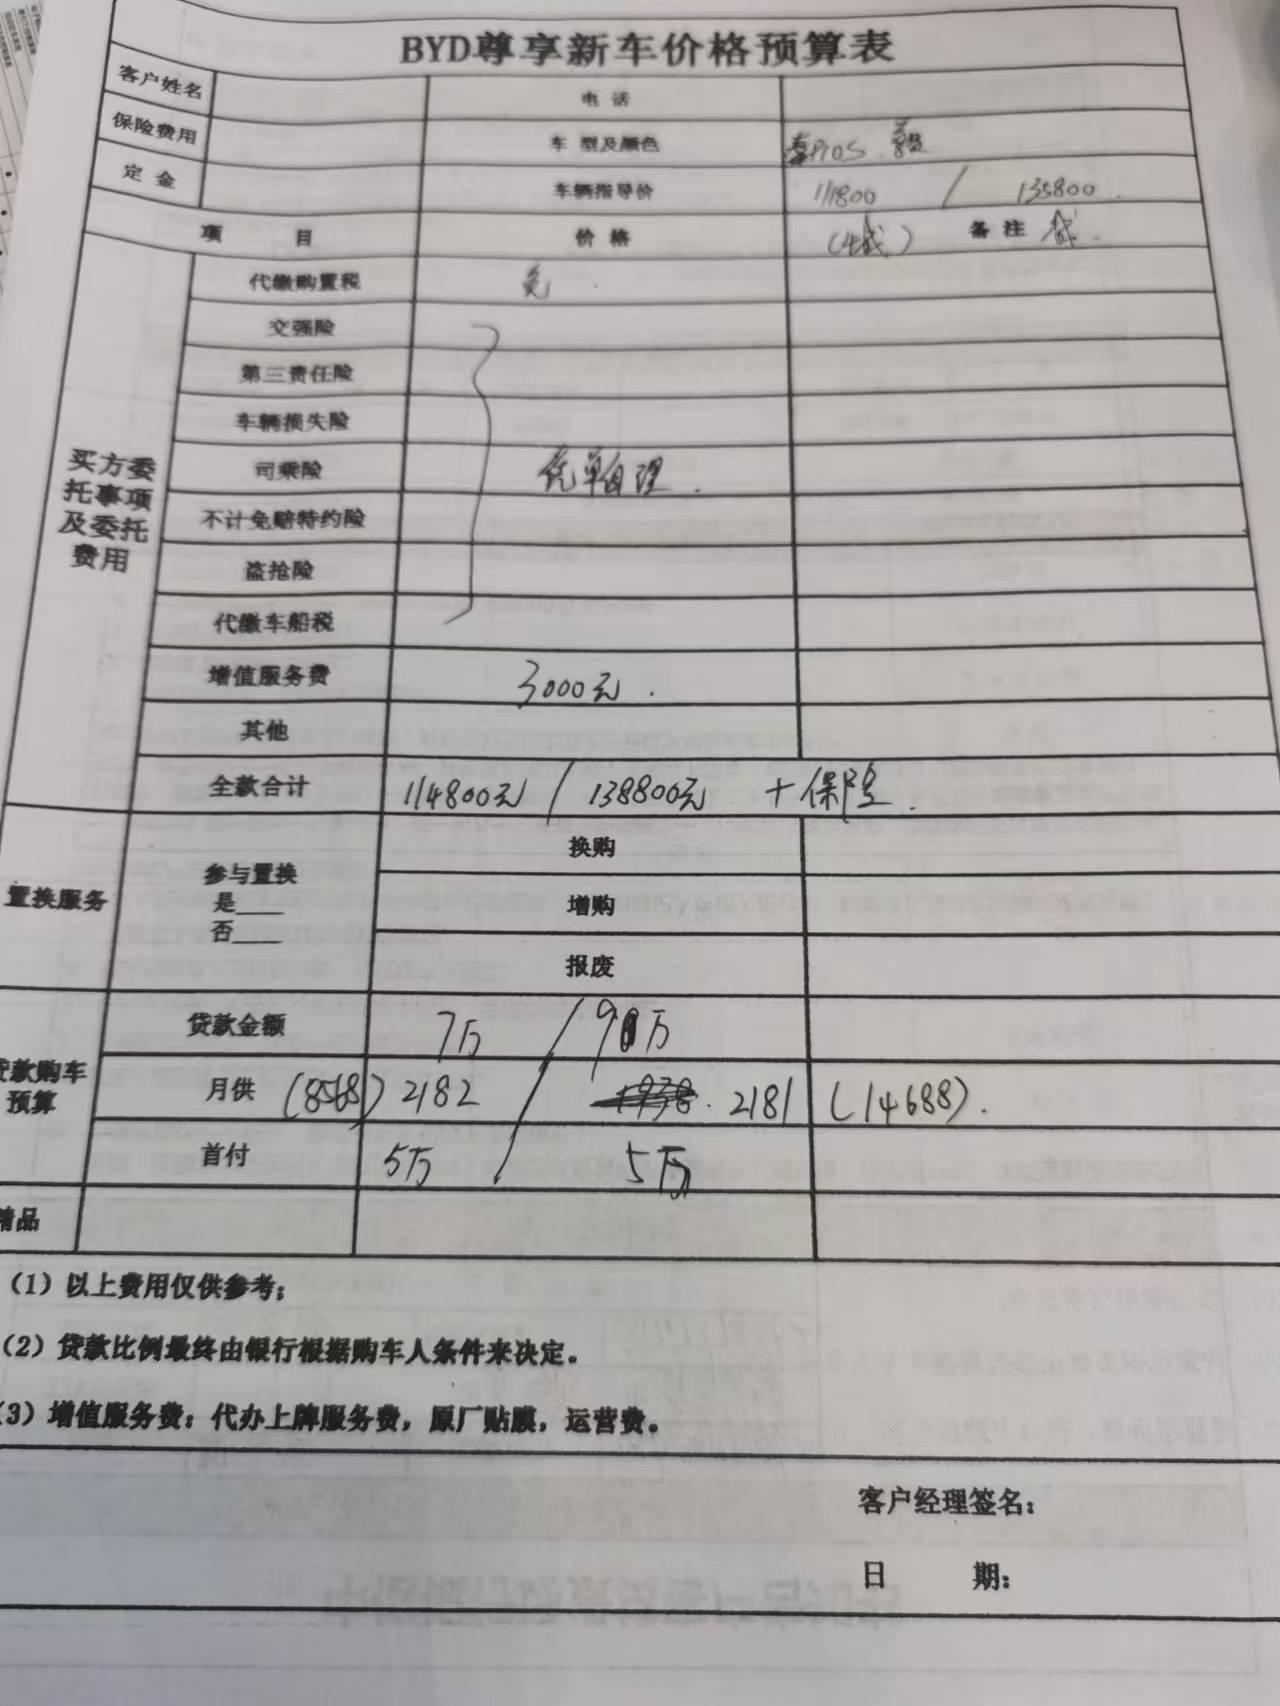 BYD尊享新车价格预算表
客户姓名 电 话
保险费用 车 型及颜色 秦PlOS
定 金 车辆指导价 111800 / 135800
项 目 价 格 备 注
代缴购置税 免
交强险
第三责任险
车辆损失险
买方委托事项及委托费用
司乘险 凭单自理.
不计免赔特约险
盗抢险
代缴车船税
增值服务费 3000元.
其他
全款合计 114800元 / 138800元 + 保险.
置换服务
参与置换
是____
否____
换购
增购
报废
贷款购车预算
贷款金额 7万 / 9万
月供 (8568) 2182 / 2181 (14688).
首付 5万 / 5万
精品
(1)以上费用仅供参考;
(2)贷款比例最终由银行根据购车人条件来决定。
(3)增值服务费:代办上牌服务费,原厂贴膜,运营费。
客户经理签名:
日 期: